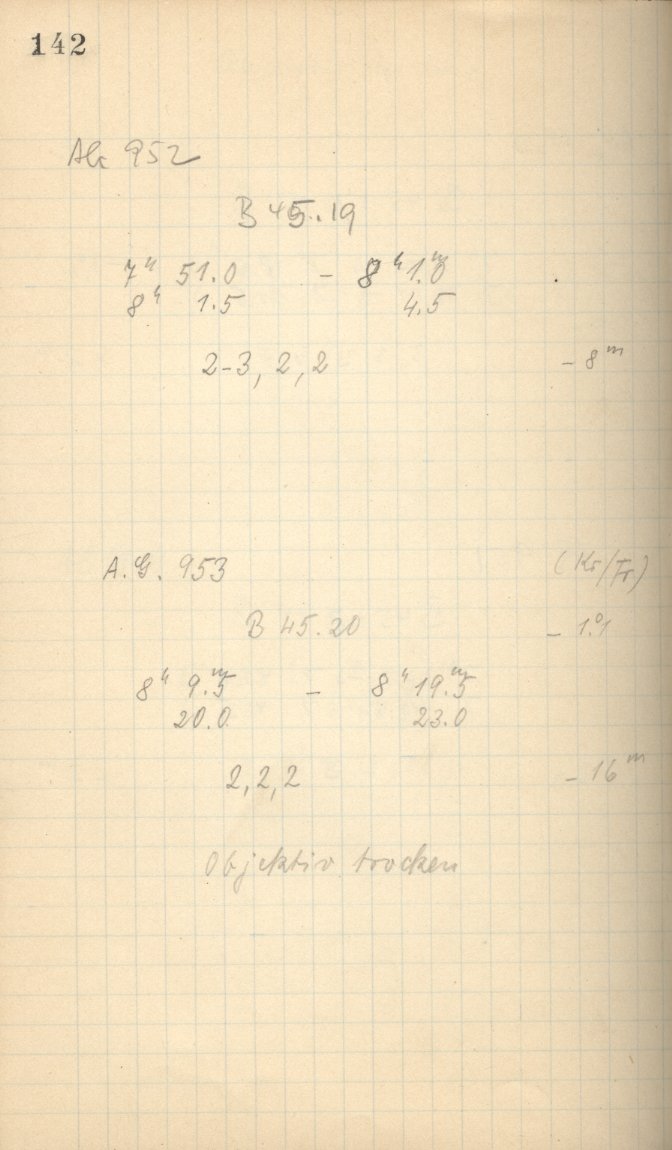 142
952
B 45.19
7ʰ 51.0 – 8ʰ 1.ᵐ0
8ʰ 1.5 4.5
2-3, 2, 2 – 8ᵐ
A.G. 953 (Kr/Fr)
B 45.20 – 1.°1
8ʰ 9.ᵐ5 – 8ʰ 19.ᵐ5
20.0 23.0
2, 2, 2 – 16ᵐ
Objektiv trocken